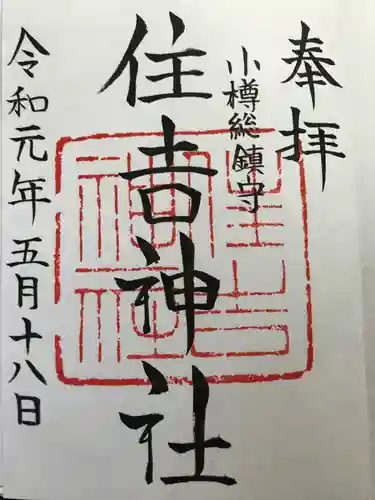 奉拝
小樽総鎮守
住吉神社
令和元年五月十八日
住吉
神社